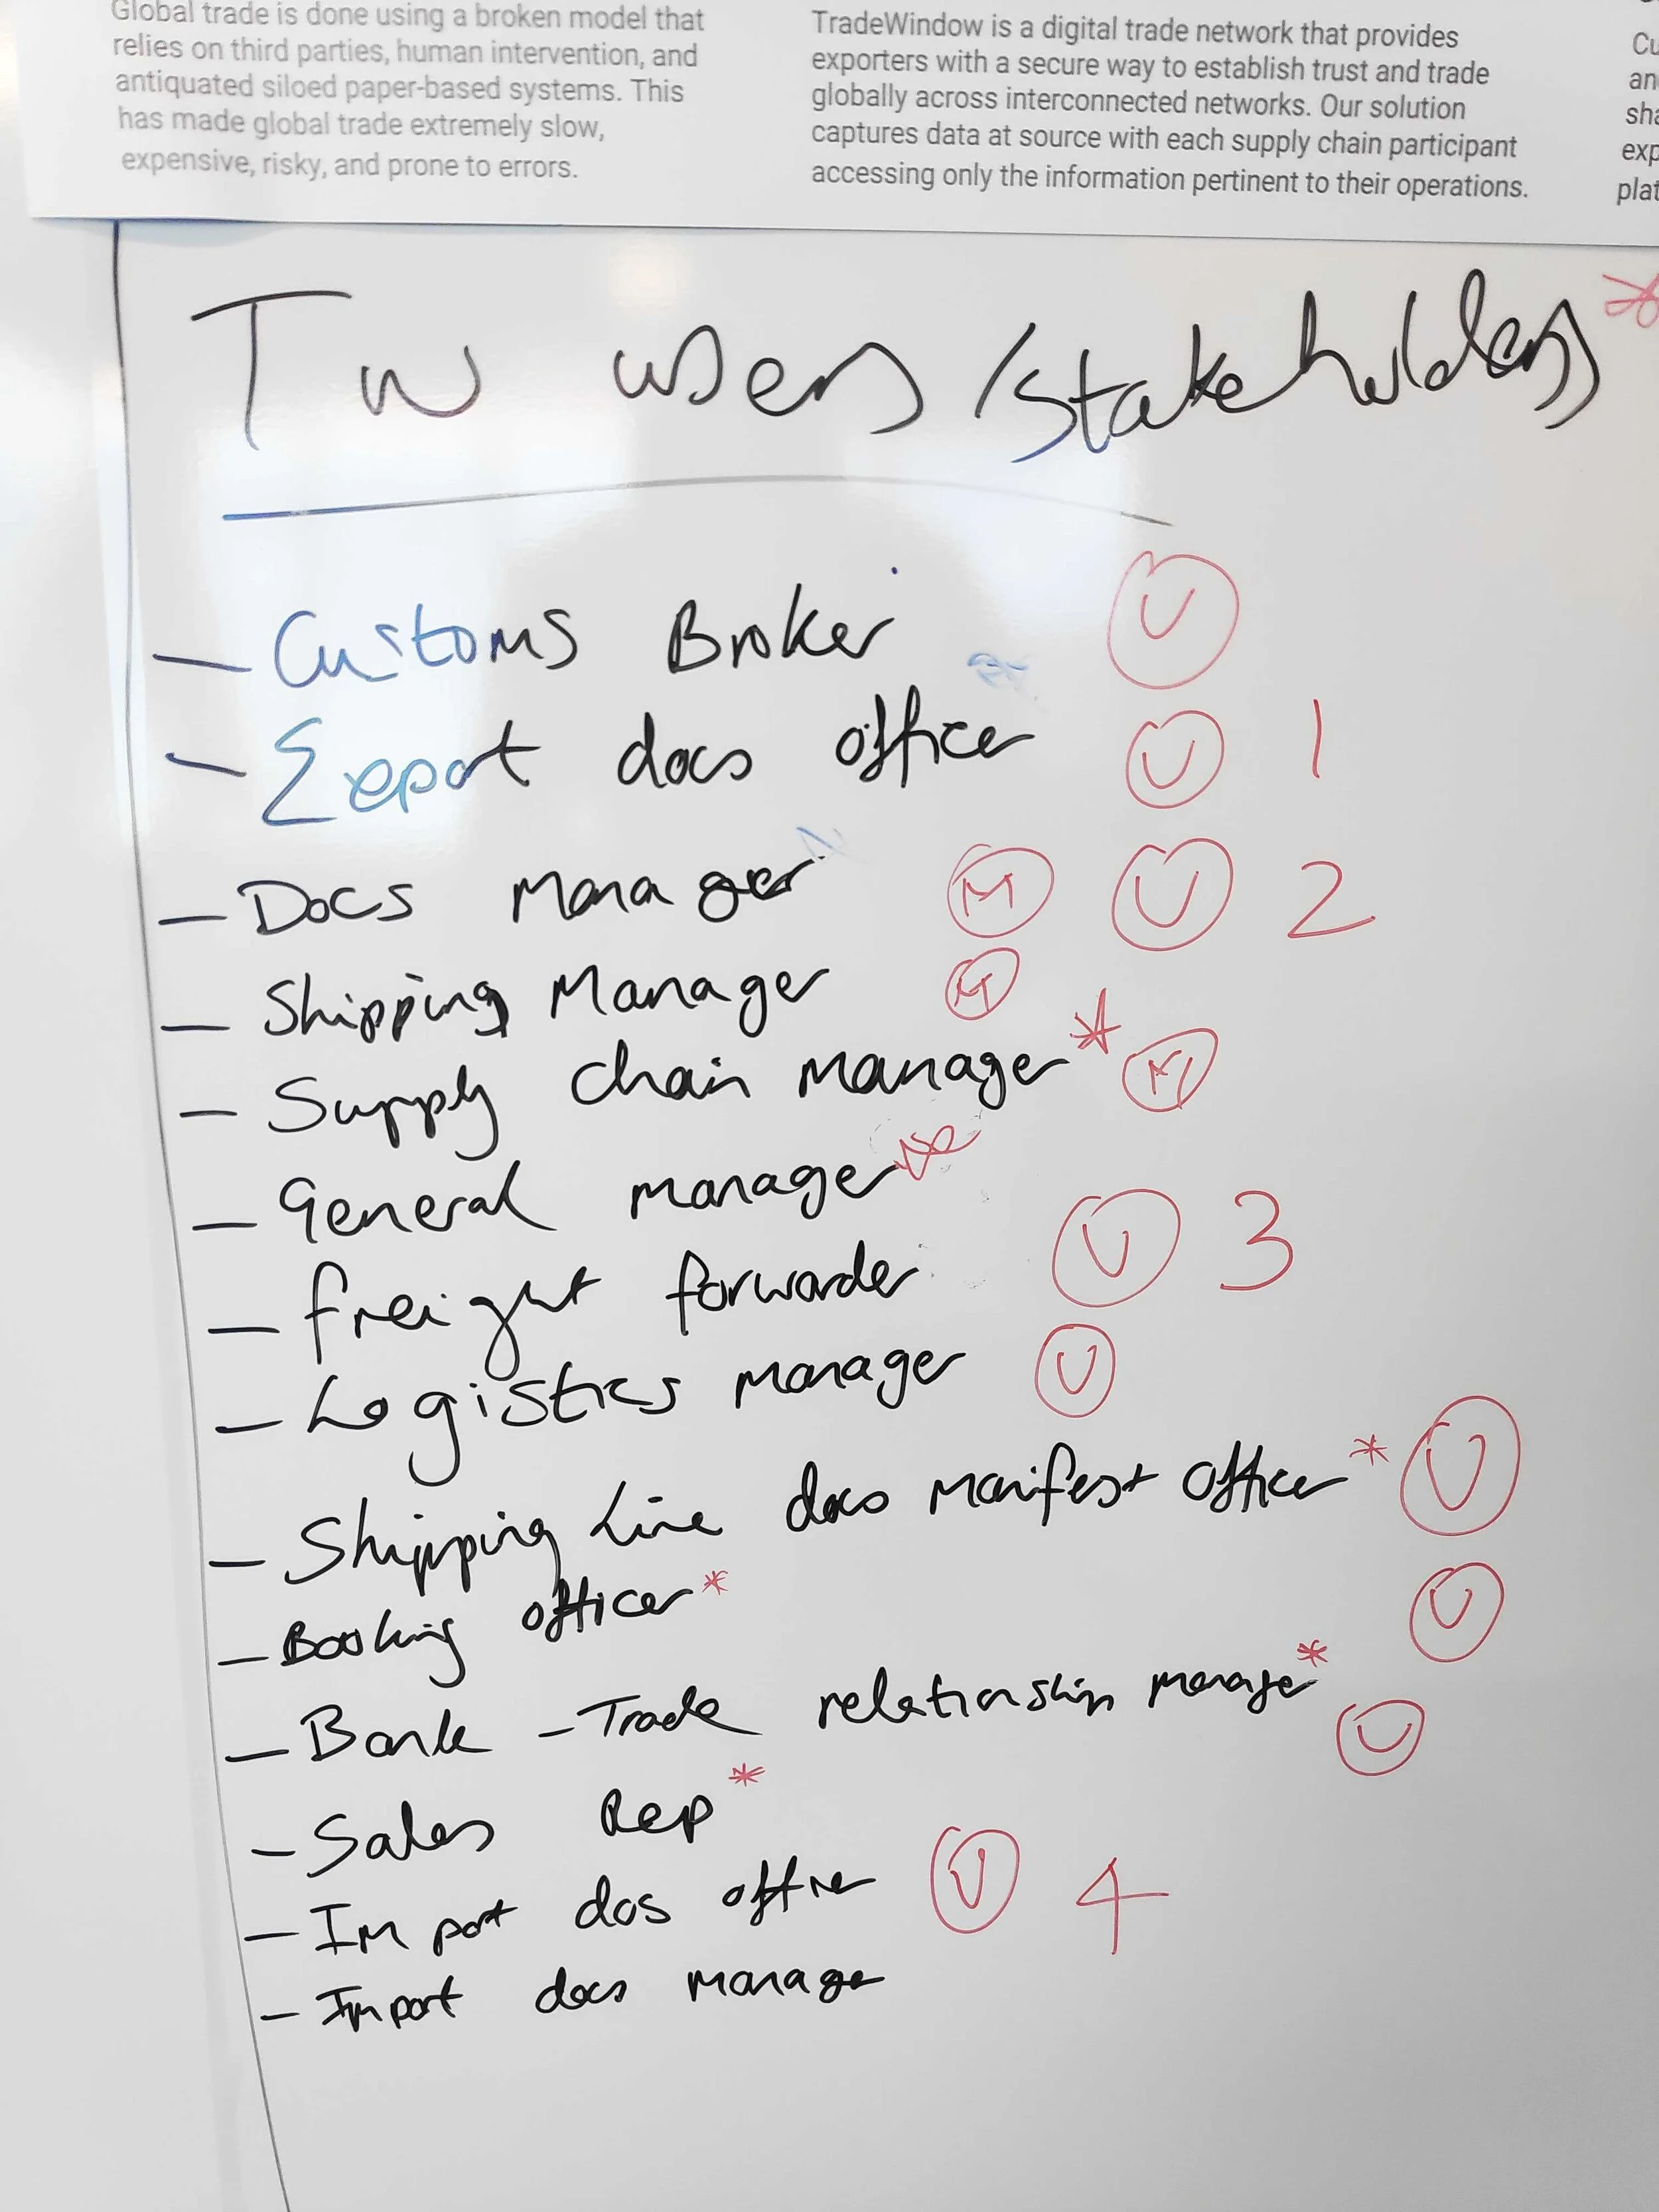 Global trade is done using a broken model that
relies on third parties, human intervention, and
antiquated siloed paper-based systems. This
has made global trade extremely slow,
expensive, risky, and prone to errors.
TradeWindow is a digital trade network that provides
exporters with a secure way to establish trust and trade
globally across interconnected networks. Our solution
captures data at source with each supply chain participant
accessing only the information pertinent to their operations.
Cu
an
sha
exp
plat
TW users/stakeholders *
- Customs Broker U
- Export docs officer U 1
- Docs Manager M U 2
- Shipping Manager M
- Supply chain manager * M
- General manager *
- freight forwarder U 3
- Logistics manager U
- Shipping Line docs manifest officer * U
- Booking officer * U
- Bank - Trade relationship manager * U
- Sales Rep *
- Import docs officer U 4
- Import docs manager